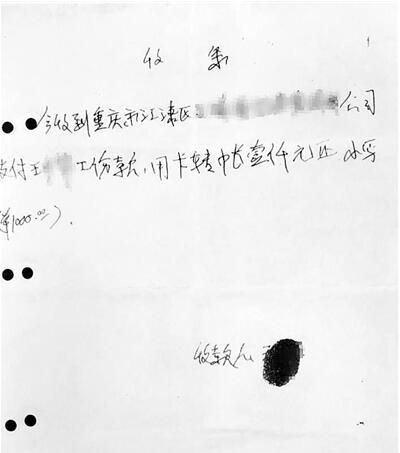 收 条
今收到重庆市江津区 公司
支付王 工伤款，用卡转帐壹仟元正 小写
1000.00）.
收款人